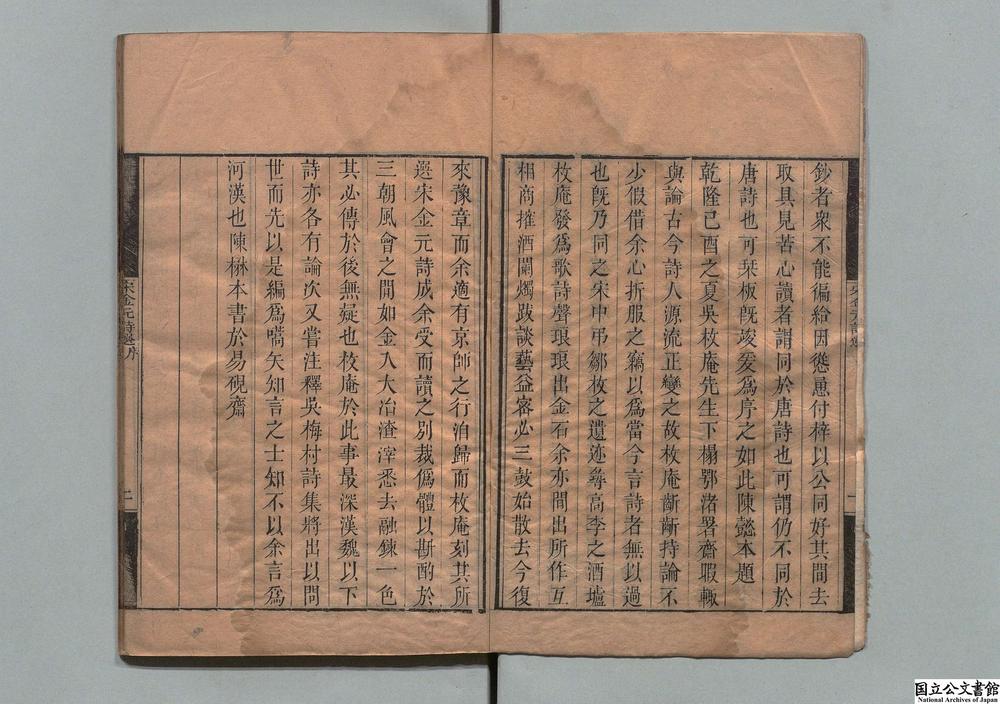 鈔者衆不能徧給因慫慂付梓以公同好其間去
取具見苦心讀者謂同於唐詩也可謂仍不同於
唐詩也可棐板旣竣爰爲序之如此陳懿本題
乾隆己酉之夏吳枚庵先生下榻鄂渚署齋暇輒
與論古今詩人源流正變之故枚庵齗齗持論不
少假借余心折服之竊以爲當今言詩者無以過
也旣乃同之宋中弔鄒枚之遺迹尋高李之酒壚
枚庵發爲歌詩聲琅琅出金石余亦間出所作互
相商搉酒闌燭跋談藝益密必三鼓始散去今復
來豫章而余適有京師之行洎歸而枚庵刻其所
選宋金元詩成余受而讀之別裁僞體以斟酌於
三朝風會之間如金入大冶渣滓悉去融鍊一色
其必傳於後無疑也枚庵於此事最深漢魏以下
詩亦各有論次又嘗注釋吳梅村詩集將出以問
世而先以是編爲嚆矢知言之士知不以余言爲
河漢也陳楙本書於易硯齋
宋金元詩選序
二
国立公文書館
National Archives of Japan